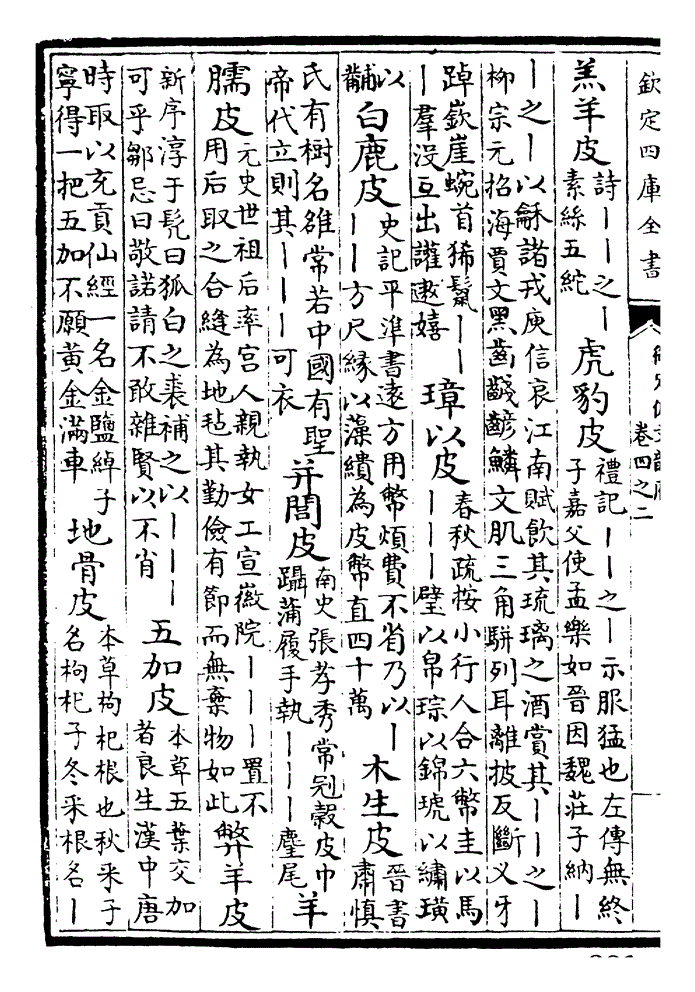 欽定四庫全書
卷四之二
羔羊皮 詩丨丨之丨素絲五紽 虎豹皮 禮記丨丨之丨示服猛也左傳無終子嘉父使孟樂如晉因魏莊子納丨
丨之丨以龢諸戎庾信哀江南賦飲其琉璃之酒賞其丨丨之丨柳宗元招海賈文黑齒鱗文肌三角駢列耳離披反斷叉牙
踔嶔崖蜿首狶鬣丨丨丨羣沒互出讙遨嬉 璋以皮 春秋疏按小行人合六幣圭以馬丨丨丨璧以帛琮以錦琥以繡璜
以黼 白鹿皮 史記平準書遠方用幣煩費不省乃以丨丨丨方尺緣以藻繢為皮幣直四十萬 木生皮 晉書肅慎
氏有樹名雒常若中國有聖帝代立則其丨丨丨可衣 并閭皮 南史張孝秀常冠縠皮巾躡蒲履手執丨丨丨麈尾 羊
臑皮 元史世祖后率宮人親執女工宣徽院丨丨丨置不用后取之合縫為地毡其勤儉有節而無棄物如此 弊羊皮
新序淳于髠曰狐白之裘補之以丨丨丨可乎鄒忌曰敬諾請不敢雜賢以不肖 五加皮 本草五葉交加者良生漢中唐
時取以充貢仙經一名金鹽綽子寧得一把五加不願黃金滿車 地骨皮 本草枸杞根也秋采子名枸杞子冬采根名丨